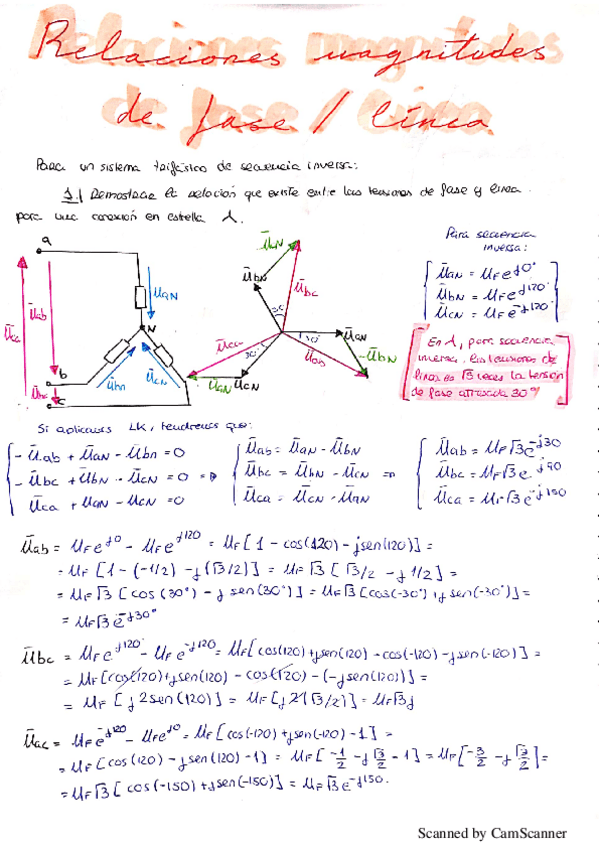 Relaciones magnitudes
de fase / línea
Para un sistema trifásico de secuencia inversa:
1.| Demostrar la relación que existe entre las tensiones de fase y línea
para una conexión en estrella ⅄.
Para secuencia
inversa:
a
ŪaN
N
Ūab
Ūca
Ūbc
b
c
Ūbn
ŪcN
ŪbN
-ŪcN
Ūbc
30°
ŪaN
Ūca
Ūab
-ŪbN
-ŪaN
ŪcN
ŪaN = UF e^j0°
ŪbN = UF e^j120°
ŪcN = UF e^-j120°
En ⅄, para secuencia
inversa, las tensiones de
línea es √3 veces la tensión
de fase atrasada 30°
Si aplicamos LK, tendremos que:
-Ūab + ŪaN - Ūbn = 0
-Ūbc + ŪbN - ŪcN = 0 =>
Ūca + ŪaN - ŪcN = 0
Ūab = ŪaN - ŪbN
Ūbc = ŪbN - ŪcN =>
Ūca = ŪcN - ŪaN
Ūab = UF√3 e^-j30
Ūbc = UF√3 e^j90
Ūca = UF√3 e^-j150
Ūab = UF e^j0 - UF e^j120 = UF [1 - cos(120) - jsen(120)] =
= UF [1 - (-1/2) - j(√3/2)] = UF √3 [√3/2 - j 1/2] =
= UF √3 [cos(30°) - j sen(30°)] = UF √3 [cos(-30°) + j sen(-30°)] =
= UF √3 e^-j30°
Ūbc = UF e^j120° - UF e^-j120° = UF [cos(120) + jsen(120) - cos(-120) - jsen(-120)] =
= UF [cos(120) + jsen(120) - cos(120) - (-jsen(120))] =
= UF [j2sen(120)] = UF [j2(√3/2)] = UF√3j
Ūac = UF e^-j120 - UF e^j0 = UF [cos(-120) + jsen(-120) - 1] =
= UF [cos(120) - jsen(120) - 1] = UF [-1/2 - j√3/2 - 1] = UF [-3/2 - j√3/2] =
= UF√3 [cos(-150) + jsen(-150)] = UF√3 e^-j150.
Scanned by CamScanner